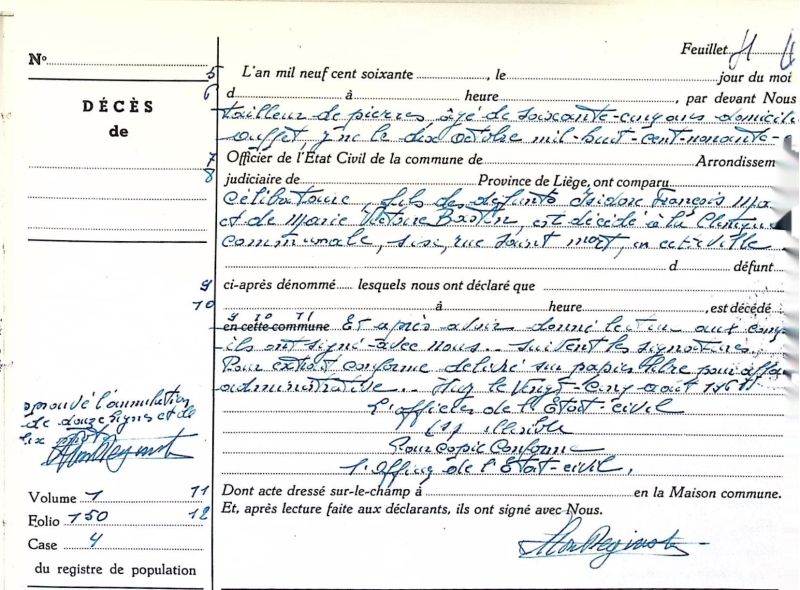 Feuillet
No
L'an mil neuf cent soixante , le jour du moi
5
d à heure , par devant Nous
6
DÉCÈS
de
tailleur de pierres âgé de soixante-cinq ans domicili
ouffet, y né le dix octobre mil-huit-cent-nonante-
7 Officier de l'État Civil de la commune de Arrondissem
8 judiciaire de Province de Liège, ont comparu
célibataire, fils des défunts Isidore François
et de Marie Victoire Bastin, est décédé à la Clinique
communale, sise, rue Saint Mort, en cette ville.
d défunt
9 ci-après dénommé lesquels nous ont déclaré que
10 à heure , est décédé
9 10 11
en cette commune Et après avoir donné lecture aux comp
ils ont signé avec nous. Suivent les signatures.
Pour extrait conforme délivré sur papier libre pour affai
administrative. Huy le Vingt-Cinq août
L'officier de l'État-civil
(s) illisible
Pour copie Conforme
l'Officier de l'État-civil.
approuvé l'annulation
de douze lignes et de
dix mots
Volume 1 11
Folio 150 12
Case 4
du registre de population
Dont acte dressé sur-le-champ à en la Maison commune.
Et, après lecture faite aux déclarants, ils ont signé avec Nous.